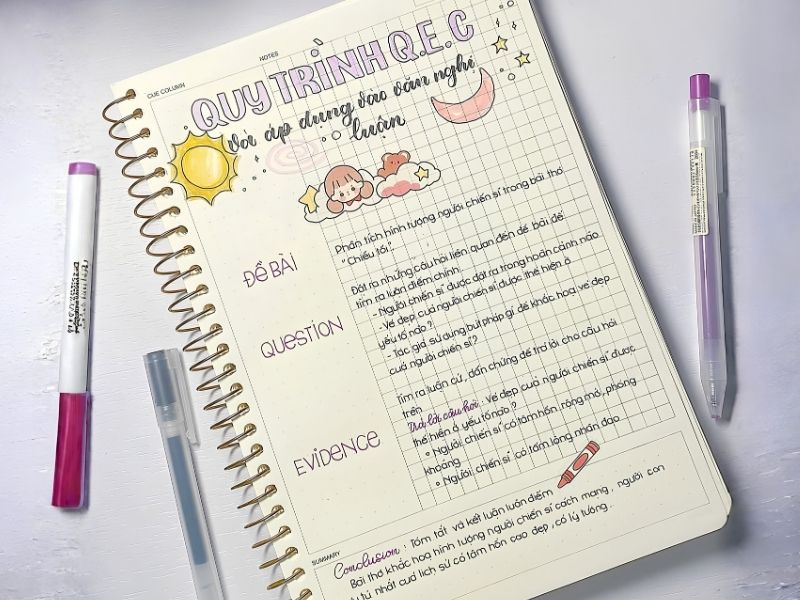 NOTES
CUE COLUMN
QUY TRÌNH Q.E.C
và áp dụng vào văn nghị
luận
ĐỀ BÀI
Phân tích hình tượng người chiến sĩ trong bài thơ
"Chiều tối".
QUESTION
Đặt ra những câu hỏi liên quan đến đề bài để
tìm ra luận điểm chính:
- Người chiến sĩ được đặt ra trong hoàn cảnh nào
- Vẻ đẹp của người chiến sĩ được thể hiện ở
yếu tố nào?
- Tác giả sử dụng bút pháp gì để khắc hoạ vẻ đẹp
của người chiến sĩ?
EVIDENCE
Tìm ra luận cứ, dẫn chứng để trả lời cho câu hỏi
trên
Trả lời câu hỏi: Vẻ đẹp của người chiến sĩ được
thể hiện ở yếu tố nào?
• Người chiến sĩ có tâm hồn rộng mở, phóng
khoáng
• Người chiến sĩ có tấm lòng nhân đạo
SUMMARY
Conclusion: Tóm tắt và kết luận luận điểm
Bài thơ khắc hoạ hình tượng người chiến sĩ cách mạng, người con
tú nhất của lịch sử có tâm hồn cao đẹp, có lý tưởng..